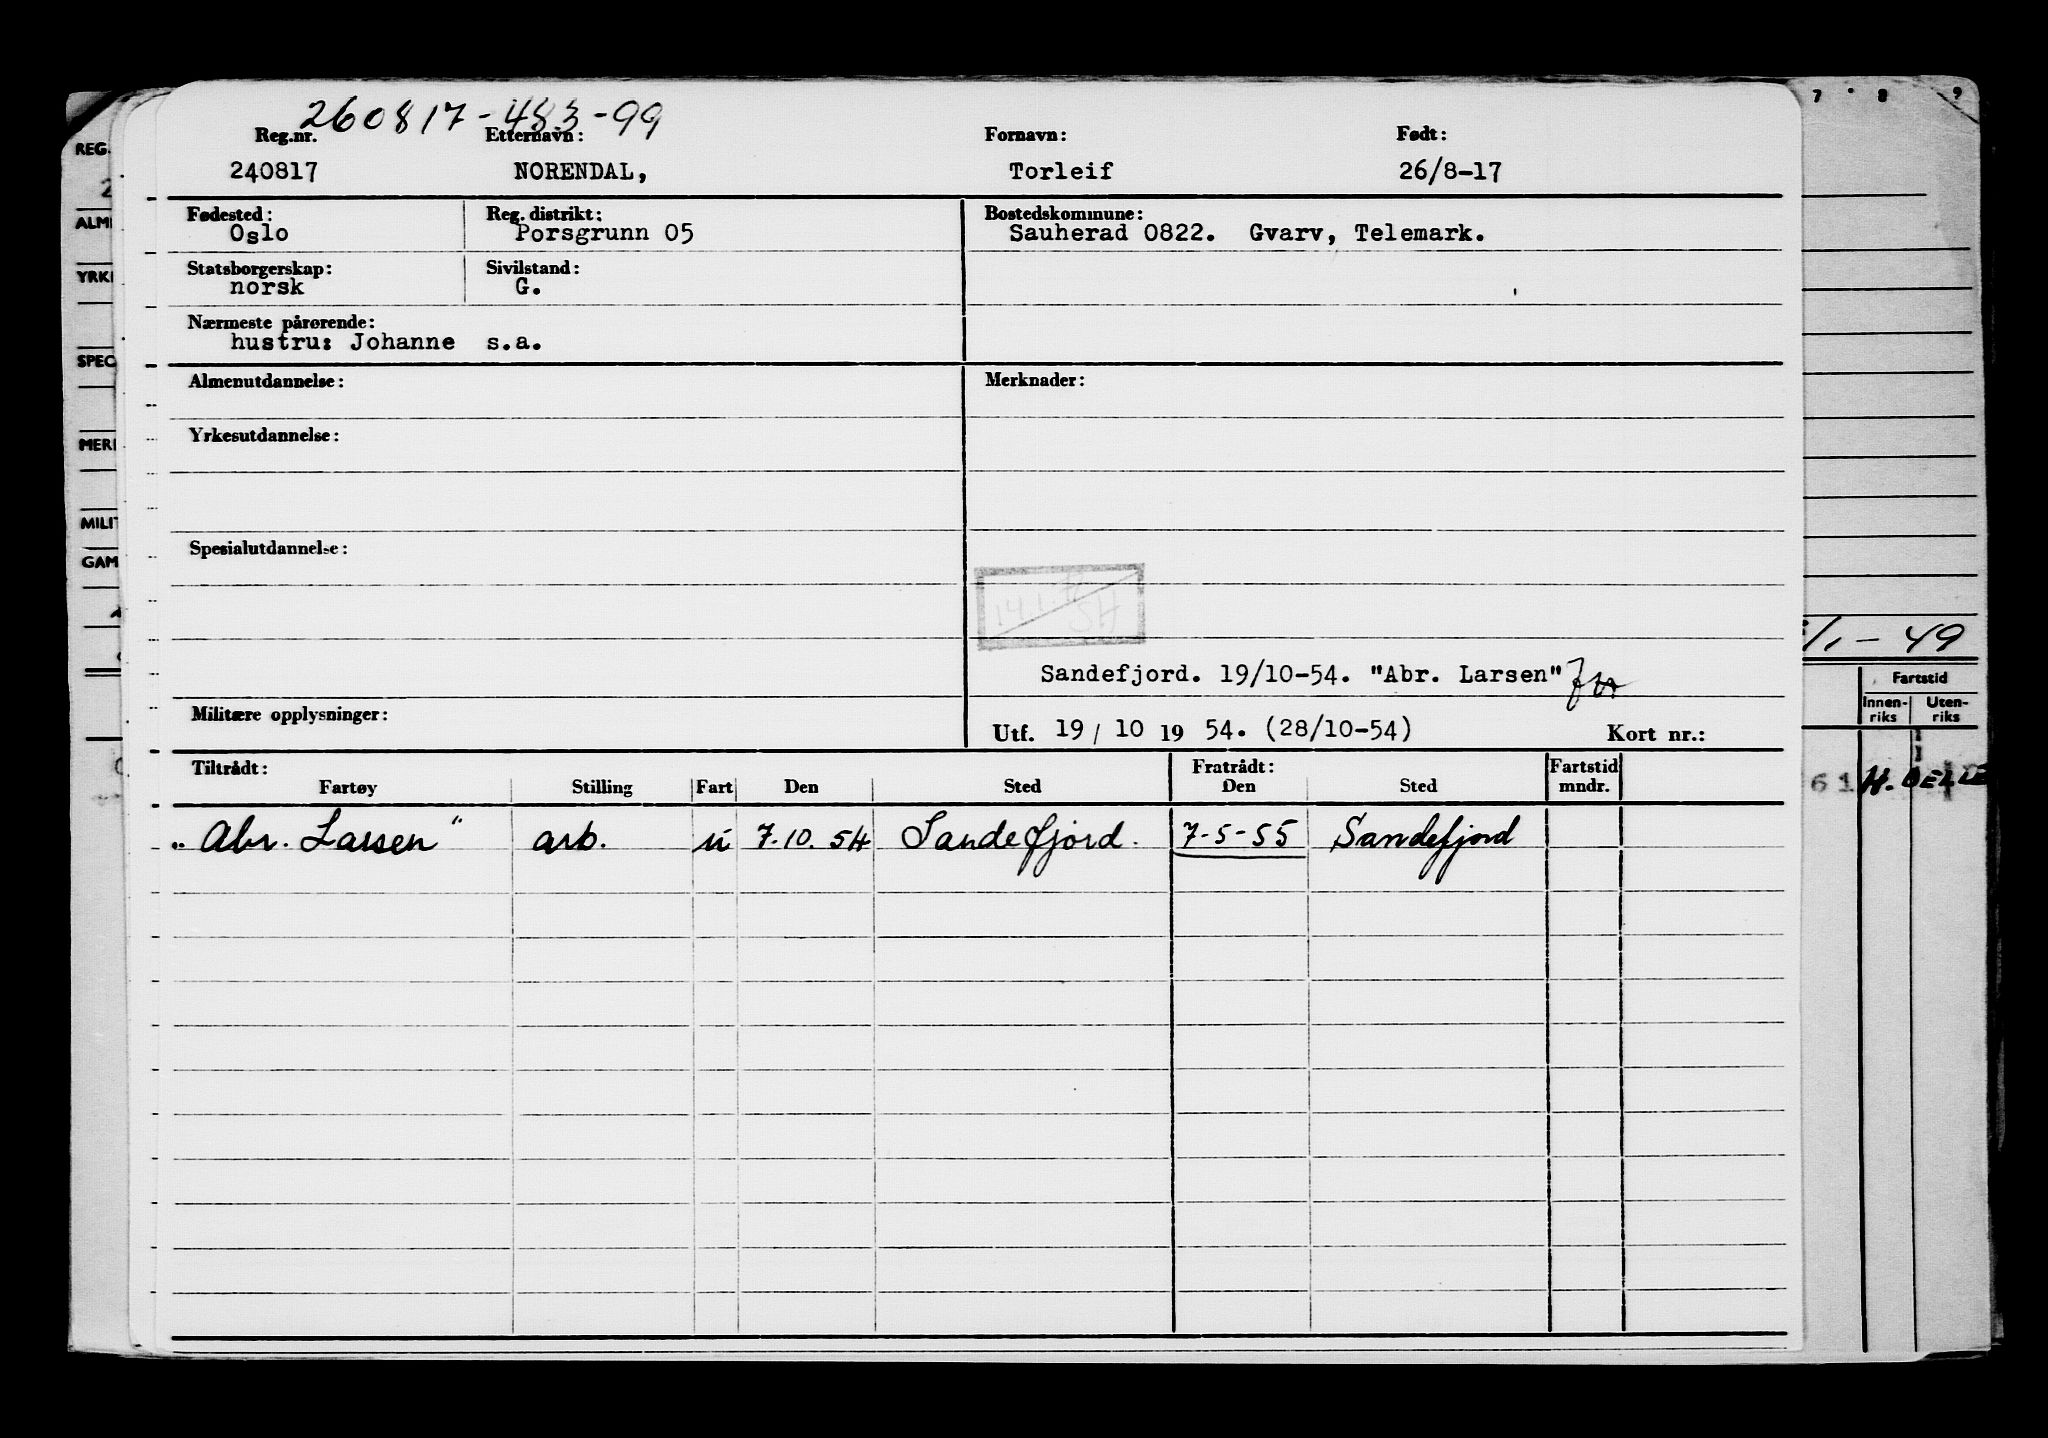 260817-483-99
Reg.nr. Etternavn: Fornavn: Født:
240817 NORENDAL, Torleif 26/8-17
Fødested: Reg. distrikt: Bostedskommune:
Oslo Porsgrunn 05 Sauherad 0822. Gvarv, Telemark.
Statsborgerskap: Sivilstand:
norsk G.
Nærmeste pårørende:
hustru: Johanne s.a.
Almenutdannelse: Merknader:
Yrkesutdannelse:
Spesialutdannelse:
Sandefjord. 19/10-54. "Abr. Larsen"
Militære opplysninger:
Utf. 19 / 10 19 54. (28/10-54) Kort nr.:
Tiltrådt: Fratrådt: Fartstid
Fartøy Stilling Fart Den Sted Den Sted mndr.
"Abr. Larsen" arb. u 7.10.54 Sandefjord. 7-5-55 Sandefjord
REG.
ALM
YRK
SPEC
MER
MILIT
GAM
7 8 9
/1-49
Fartstid
Innen-riks Uten-riks
61 H. DELLE